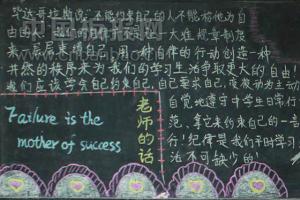 毕达哥拉斯说“不能约束自己的人不能称他为自
由的人”我们的
大难规章制度
来层层束缚自己,用一种自律的行动创造一种
井然的秩序来为我们的学习生活争取更大的自由!
我们应该学会自己约束自己,自己要求自己,变被动为主动
自觉地遵守中学生日常行
范,拿它来约束自己的一言
行!纪律是我们平时学习
活不可缺少的!
老师的话
Failure is the
mother of success